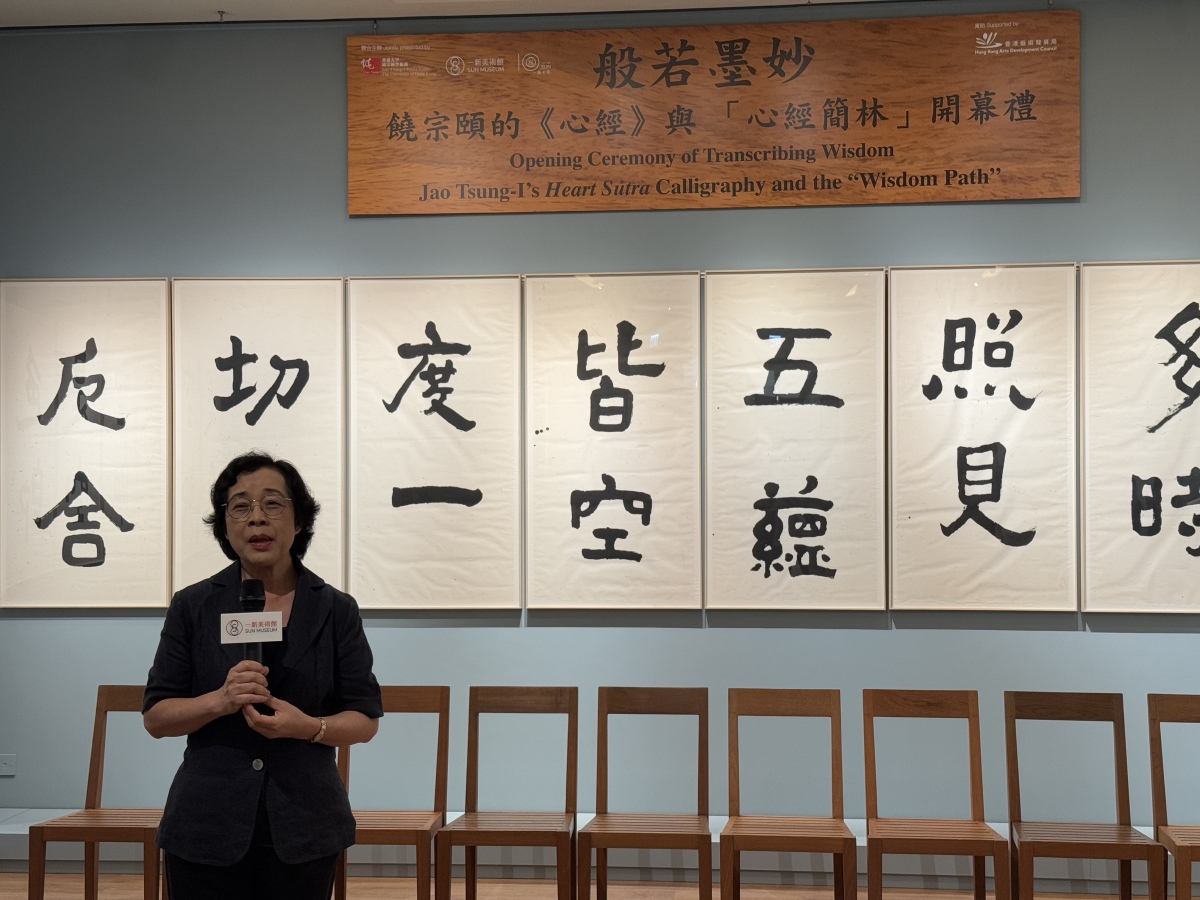 聯合主辦 Jointly presented by
香港大學
饒宗頤學術館
The University of Hong Kong
一新美術館
SUN MUSEUM
SUN
資助 Supported by
香港藝術發展局
Hong Kong Arts Development Council
般若墨妙
饒宗頤的《心經》與「心經簡林」開幕禮
Opening Ceremony of Transcribing Wisdom
Jao Tsung-I's Heart Sūtra Calligraphy and the “Wisdom Path”
多時
照見
五蘊
皆空
度一
切
厄舍
一新美術館
SUN MUSEUM